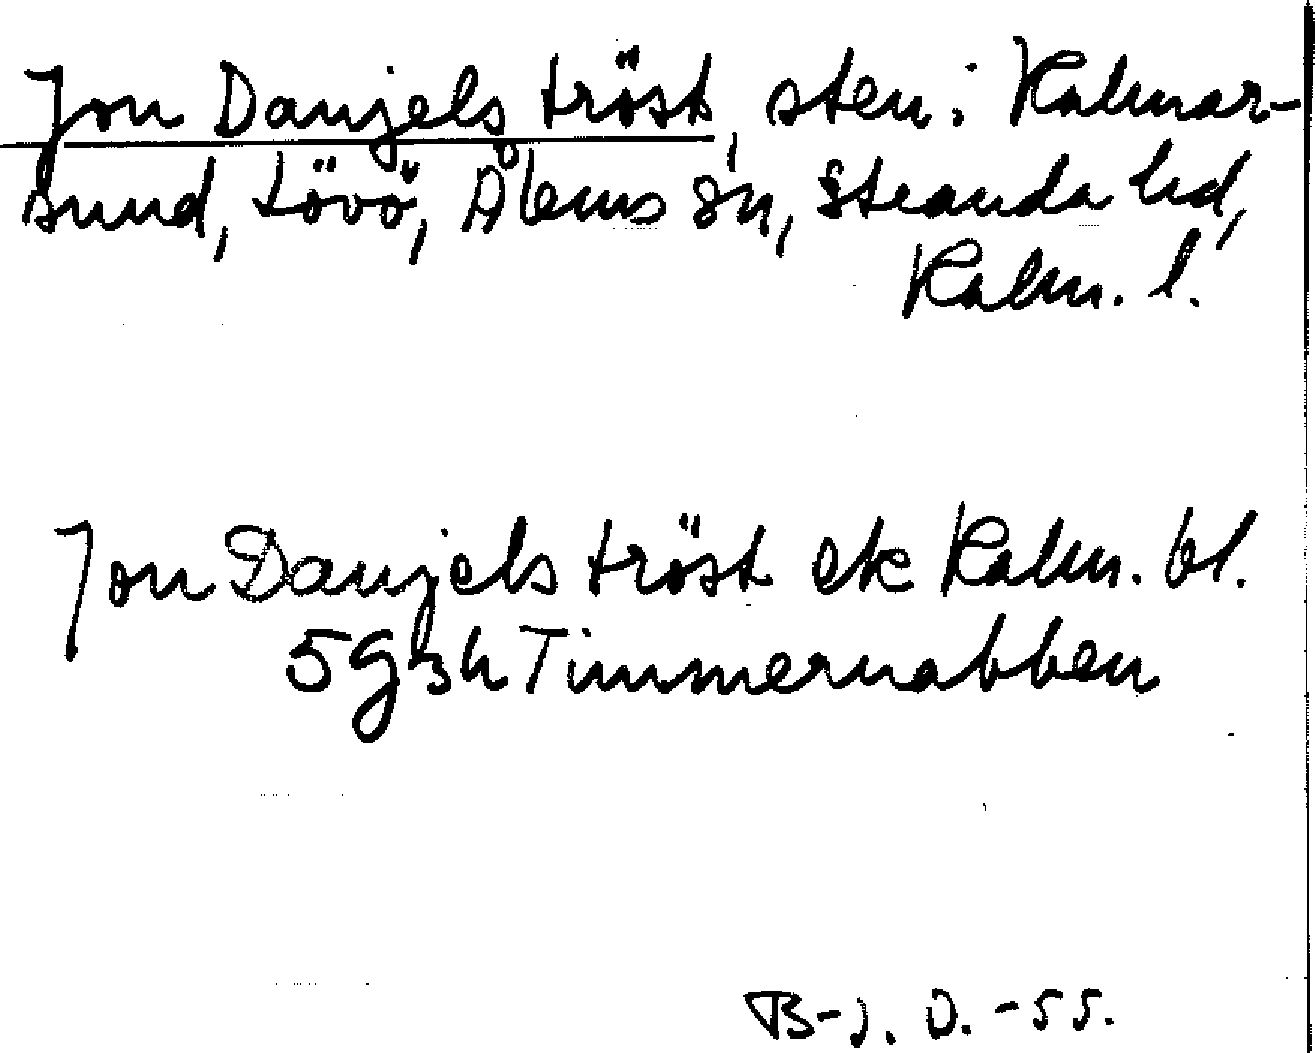 Jon Danjels tröst, sten i Kalmar-
sund, Lövö, Ålems sn, Stranda hd,
Kalm. l.
Jon Danjels tröst ek Kalm. bl.
5 g 3h Timmernabben
B-J. O. -55.